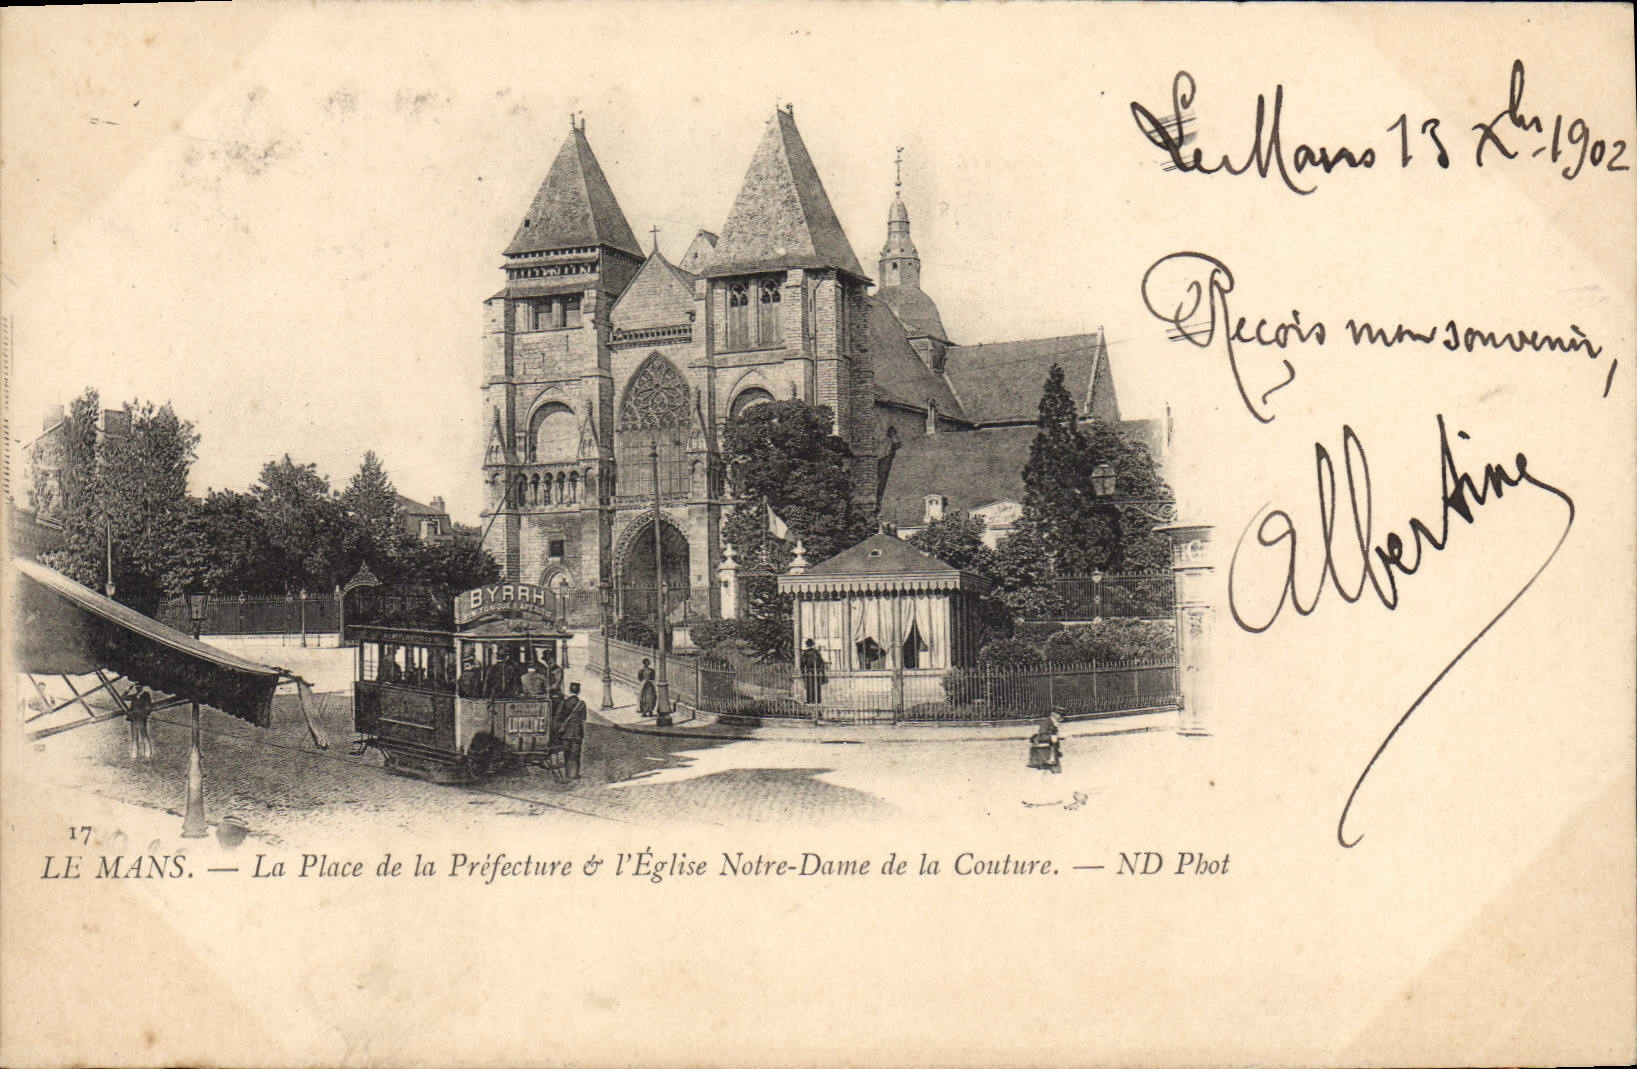 Le Mans 13 Xbr 1902
Reçois mon souvenir,
Albertine
BYRRH
TONIQUE & APÉRITIF
17
LE MANS. — La Place de la Préfecture & l'Église Notre-Dame de la Couture. — ND Phot